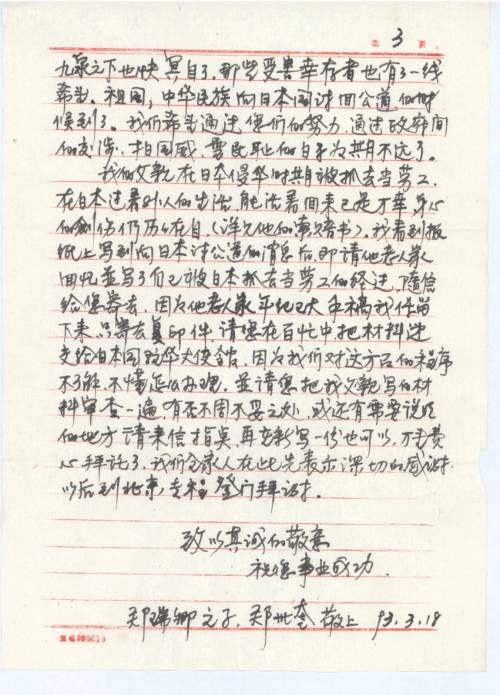 第 3 页
九泉之下也快冥目了，那些受害幸存者也有了一线
希望。祖国，中华民族向日本国讨回公道的时
候到了。我们希望通过您们的努力，通过政府间
的交涉，扬国威，雪民耻的日子为其不远了。
我们父亲在日本侵华时其被抓去当劳工，
在日本过着别人的生活，能活着回来已是万幸，身心
的创伤仍历历在目，（详见他的事实书），我看到报
纸上写到向日本讨公道的消息后，即请他老人家
回忆并写了自己被日本抓去当劳工的经过，随信
给您寄去，因为他老人家年纪已大，手稿我们留
下来，只寄去复印件，请您在百忙中，把材料递
交给日本国驻华大使馆，因为我们对这方面的程序
不了解，不懂怎么办理，并请您把我父亲写的材
料审查一遍，有否不周不妥之处，或还有需要说明
的地方请来信指点，再重新写一份也可以，万望费
心拜托了。我们全家人在此先表示深切的感谢，
以后到北京，专程登门拜谢。
致以真诚的敬意
祝您事业成功。
郑瑞卿之子，郑州奎 敬上 93.3.18